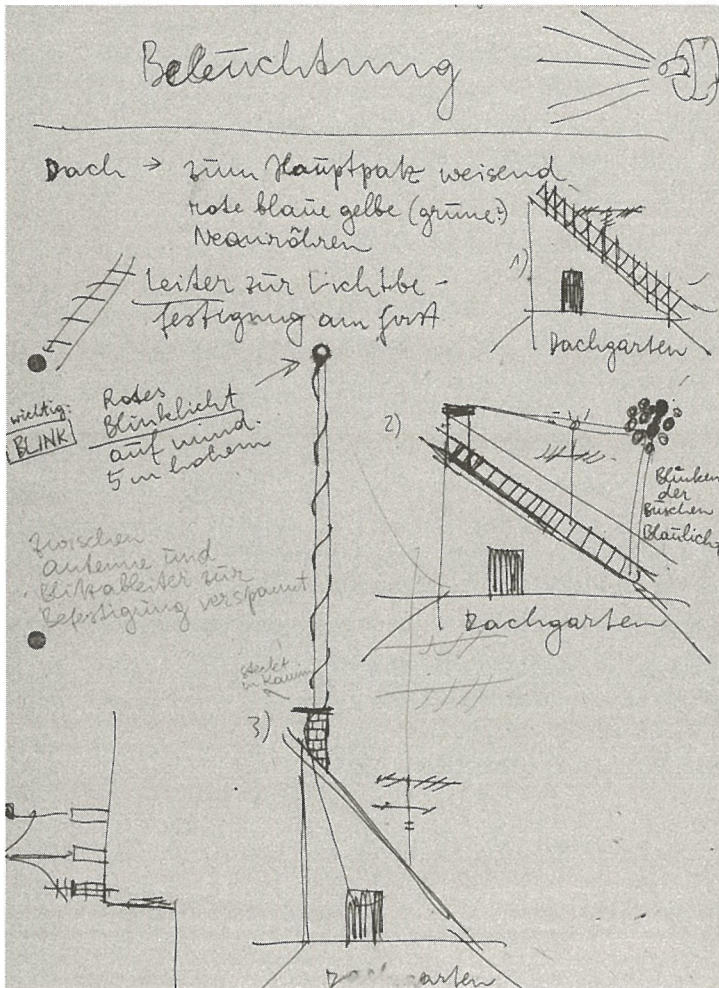 Beleuchtung
Dach → zum Hauptpatz weisend
rote blaue gelbe (grüne?)
Neonröhren
Leiter zur Lichtbe-
festigung am First
1)
Dachgarten
wichtig:
BLINK
Rotes
Blinklicht
auf mind.
5 m hohem
2)
Blinken
der
Büschen
Blaulicht
Dachgarten
zwischen
antenne und
Blitzableiter zur
Befestigung verspannt
steckt
in Kamin
3)
Dachgarten